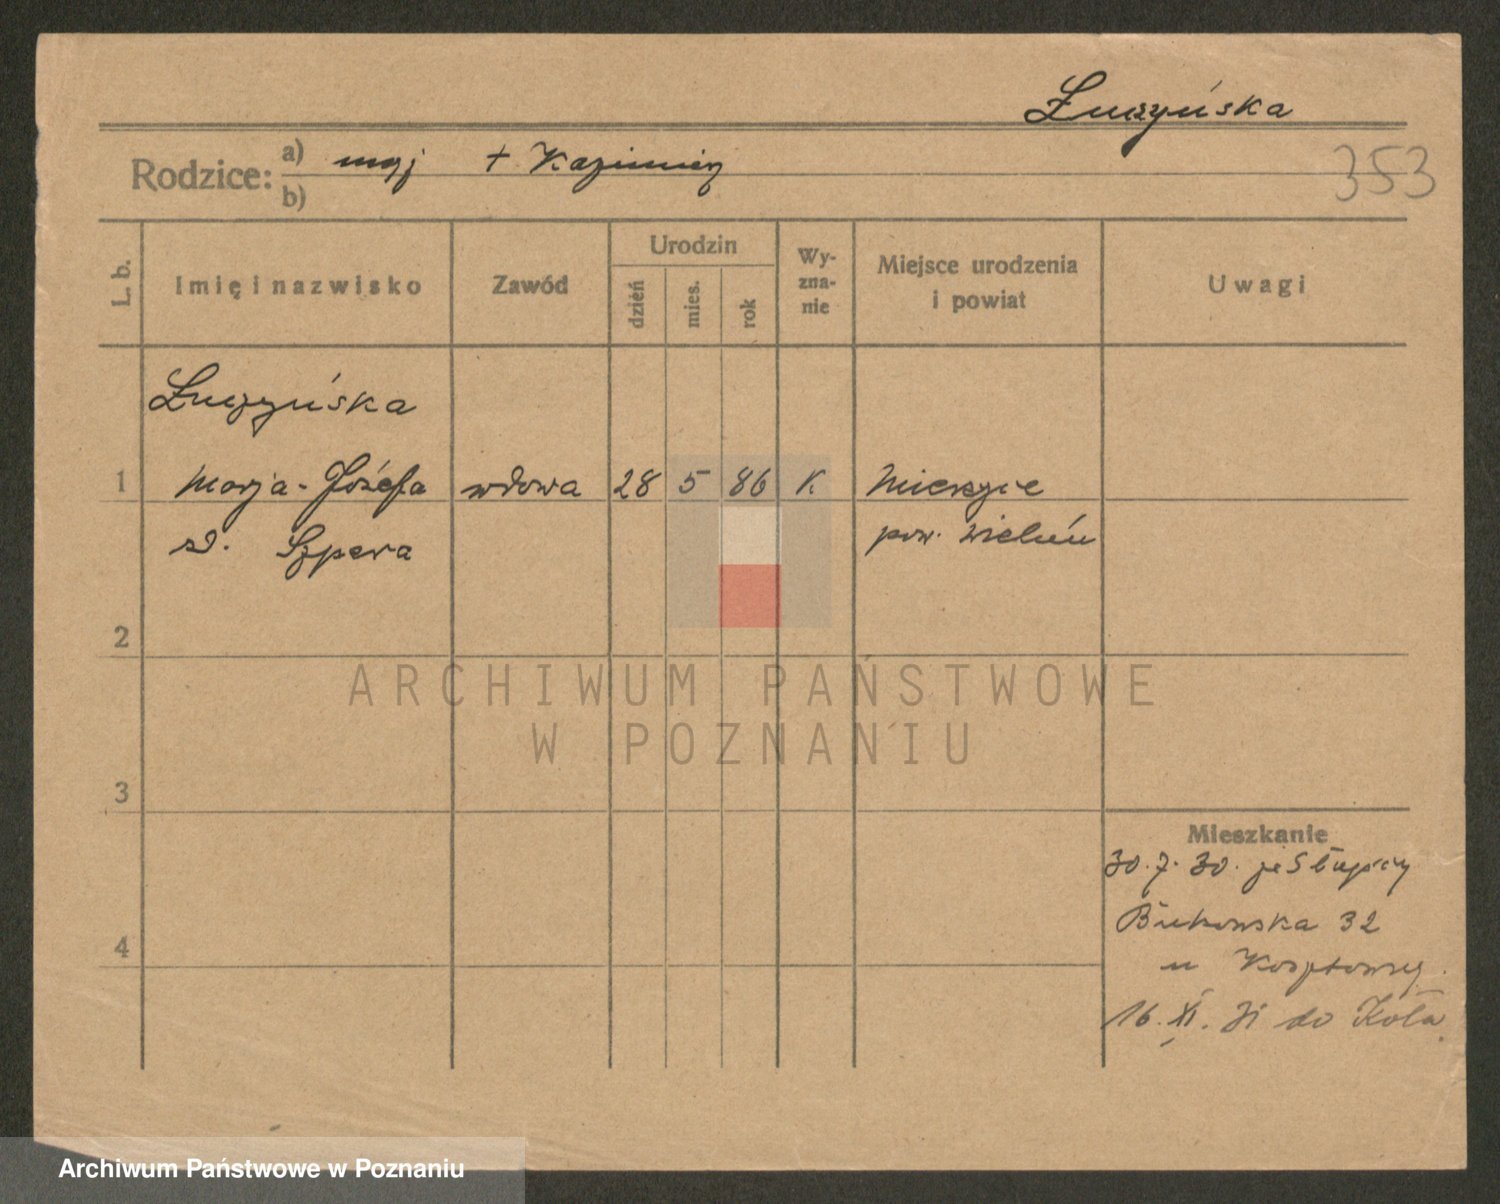 Łuczyńska
353
Rodzice: a) mąż + Kazimierz
b)
L. b. Imię i nazwisko Zawód Urodzin dzień mies. rok Wyznanie Miejsce urodzenia i powiat Uwagi
Łuczyńska
1 Marja-Józefa wdowa 28 5 86 K
pow. Wieluń
Szpera
2
ARCHIWUM PAŃSTWOWE
W POZNANIU
3
Mieszkanie
30.7.30. ze Słupcy
Bukowska 32
4
u
16.XI. 31 do Koła
Archiwum Państwowe w Poznaniu